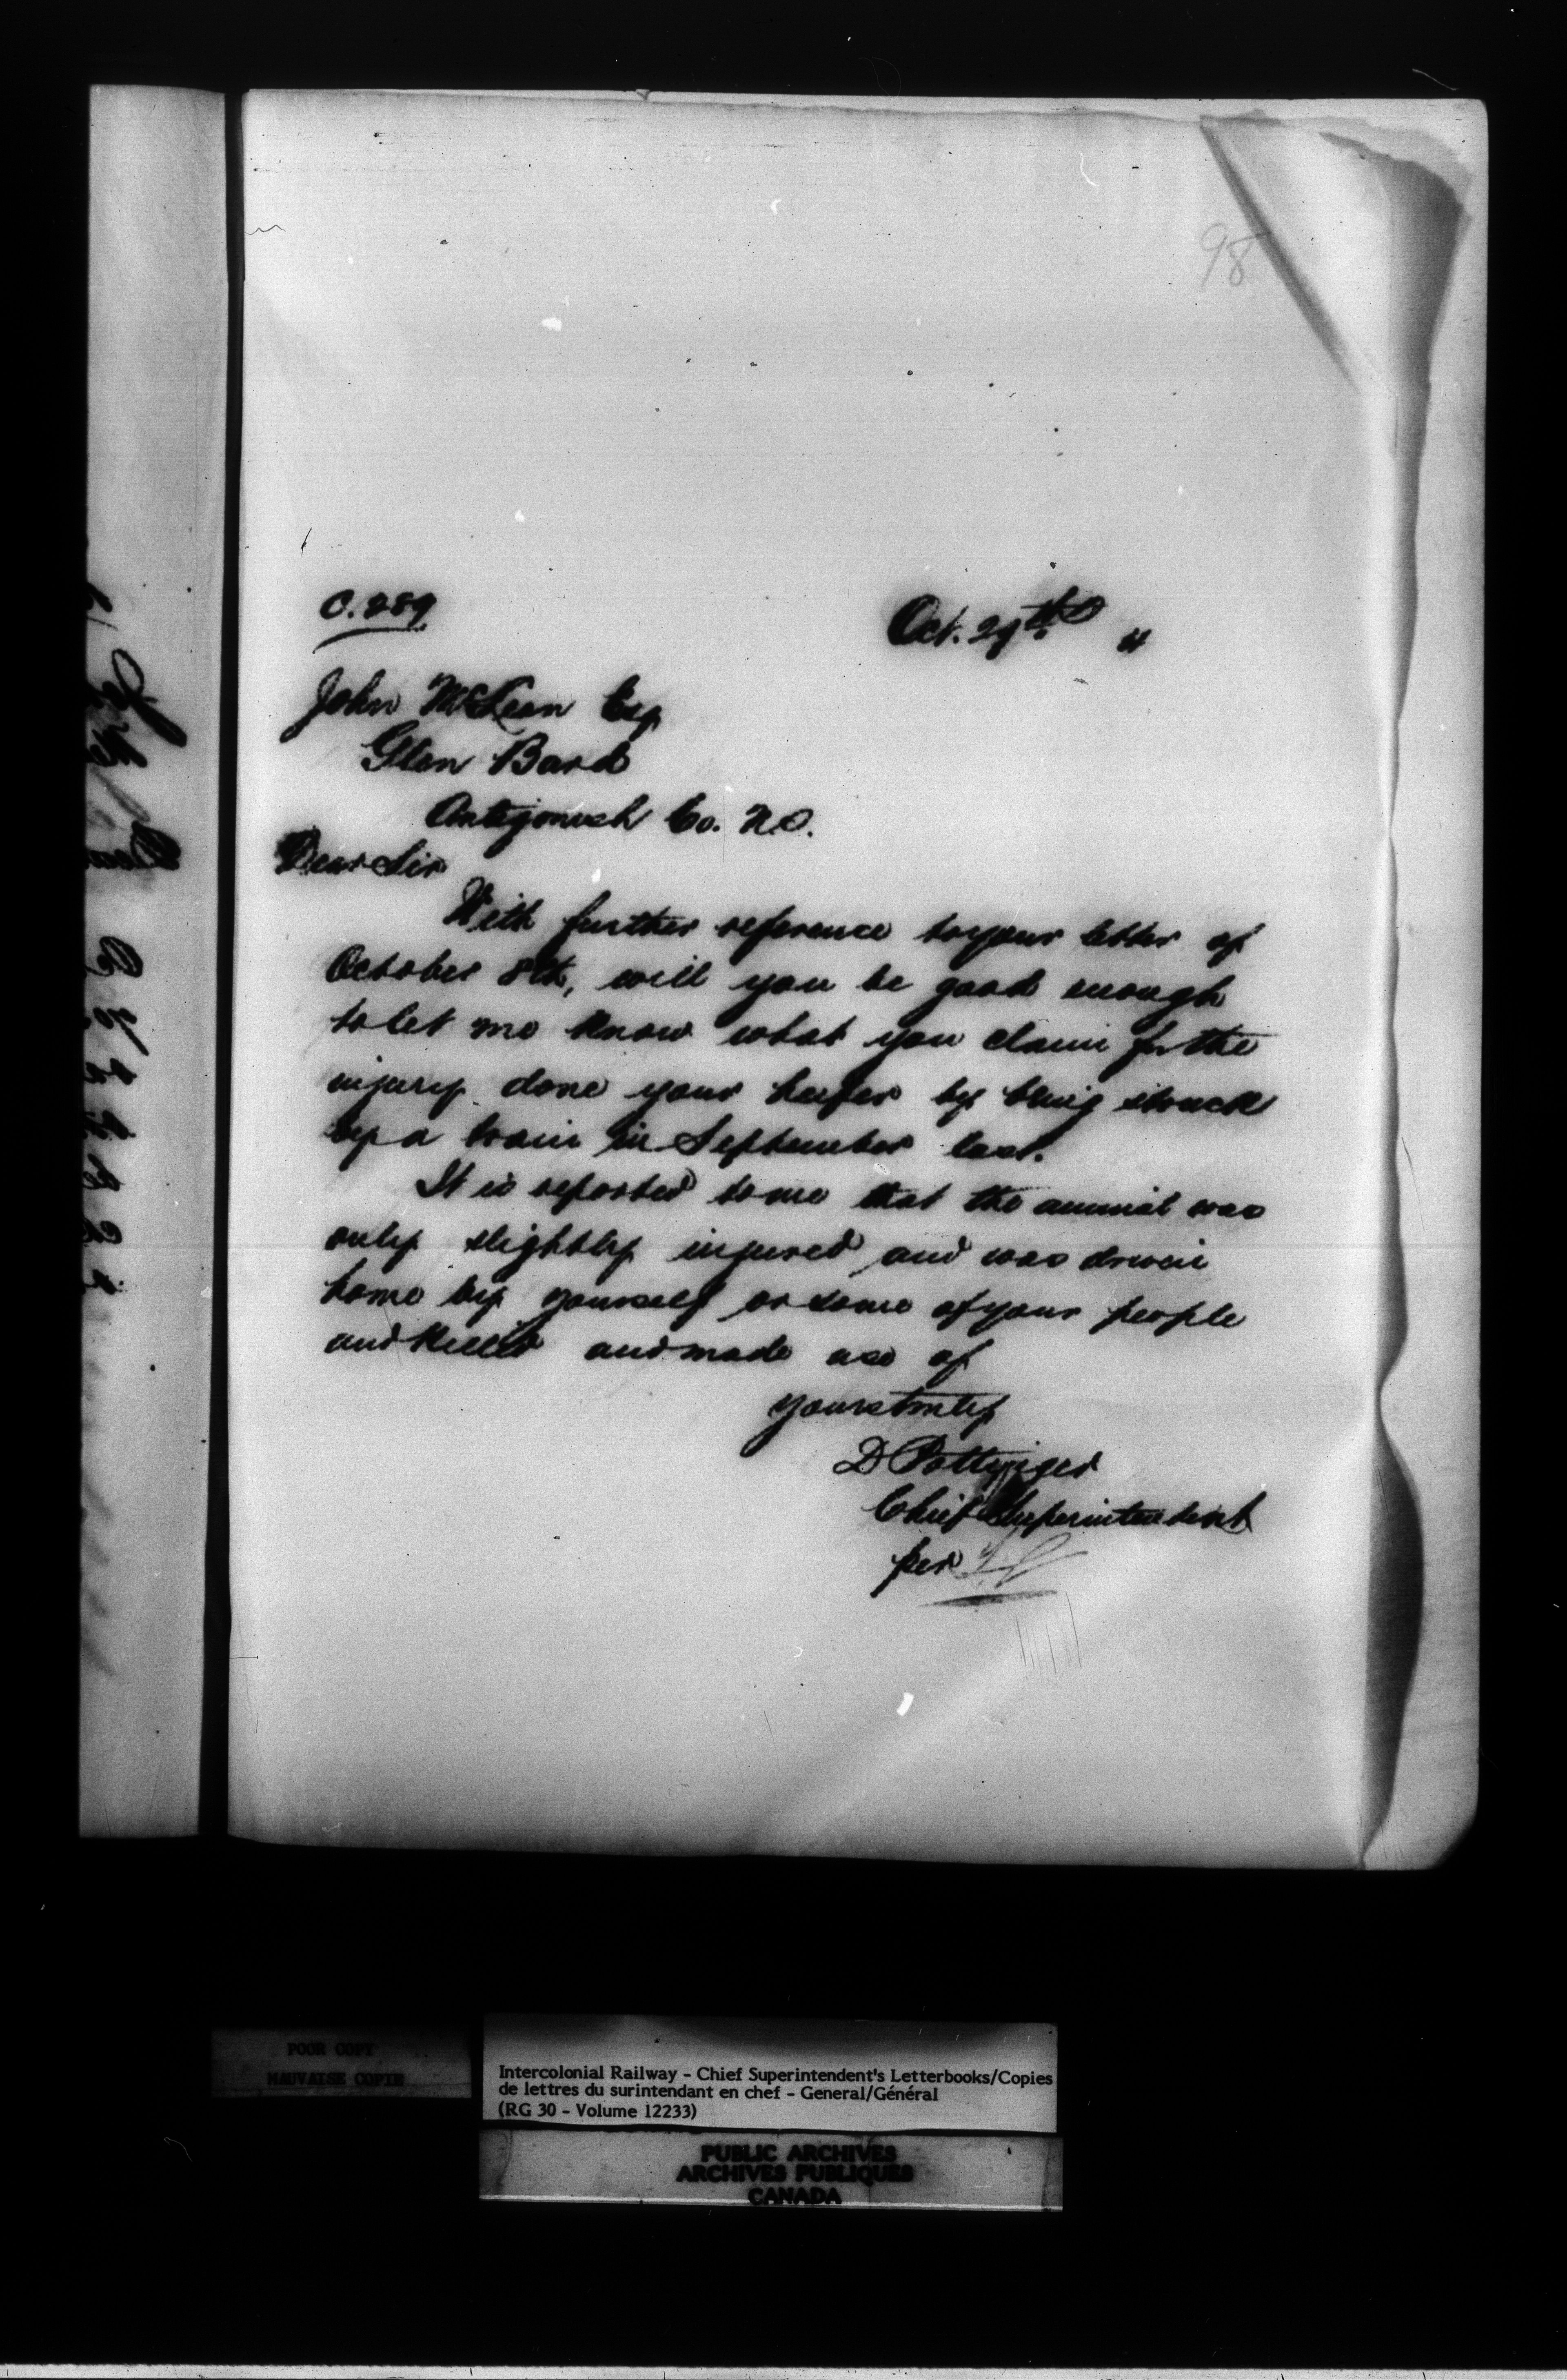 98
C. 289
Oct. 29th "
John McLean Esq
Glen Bard
Antigonish Co. N.S.
Dear Sir
With further reference to your letter of
October 8th, will you be good enough
to let me know what you claim for the
injury done your heifer by being struck
by a train in September last.
It is reported to me that the animal was
only slightly injured and was driven
home by yourself or some of your people
and killed and made use of
Yours truly
D Pottinger
Chief Superintendent
per
POOR COPY
MAUVAISE COPIE
Intercolonial Railway - Chief Superintendent's Letterbooks/Copies
de lettres du surintendant en chef - General/Général
(RG 30 - Volume 12233)
PUBLIC ARCHIVES
ARCHIVES PUBLIQUES
CANADA